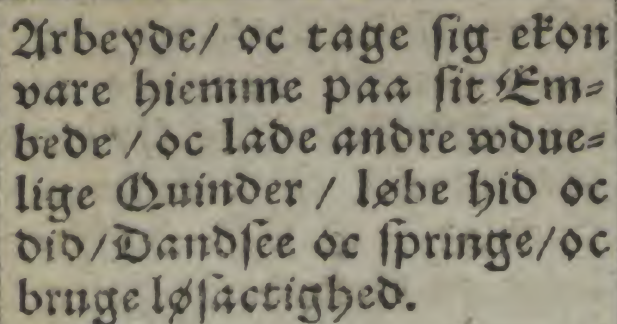 Arbeyde/ oc tage sig ekon
vare hiemme paa sit Em⸗
bede / oc lade andre wdue⸗
lige Quinder / løbe hid oc
did/Dandsee oc springe/oc
bruge løsactighed.